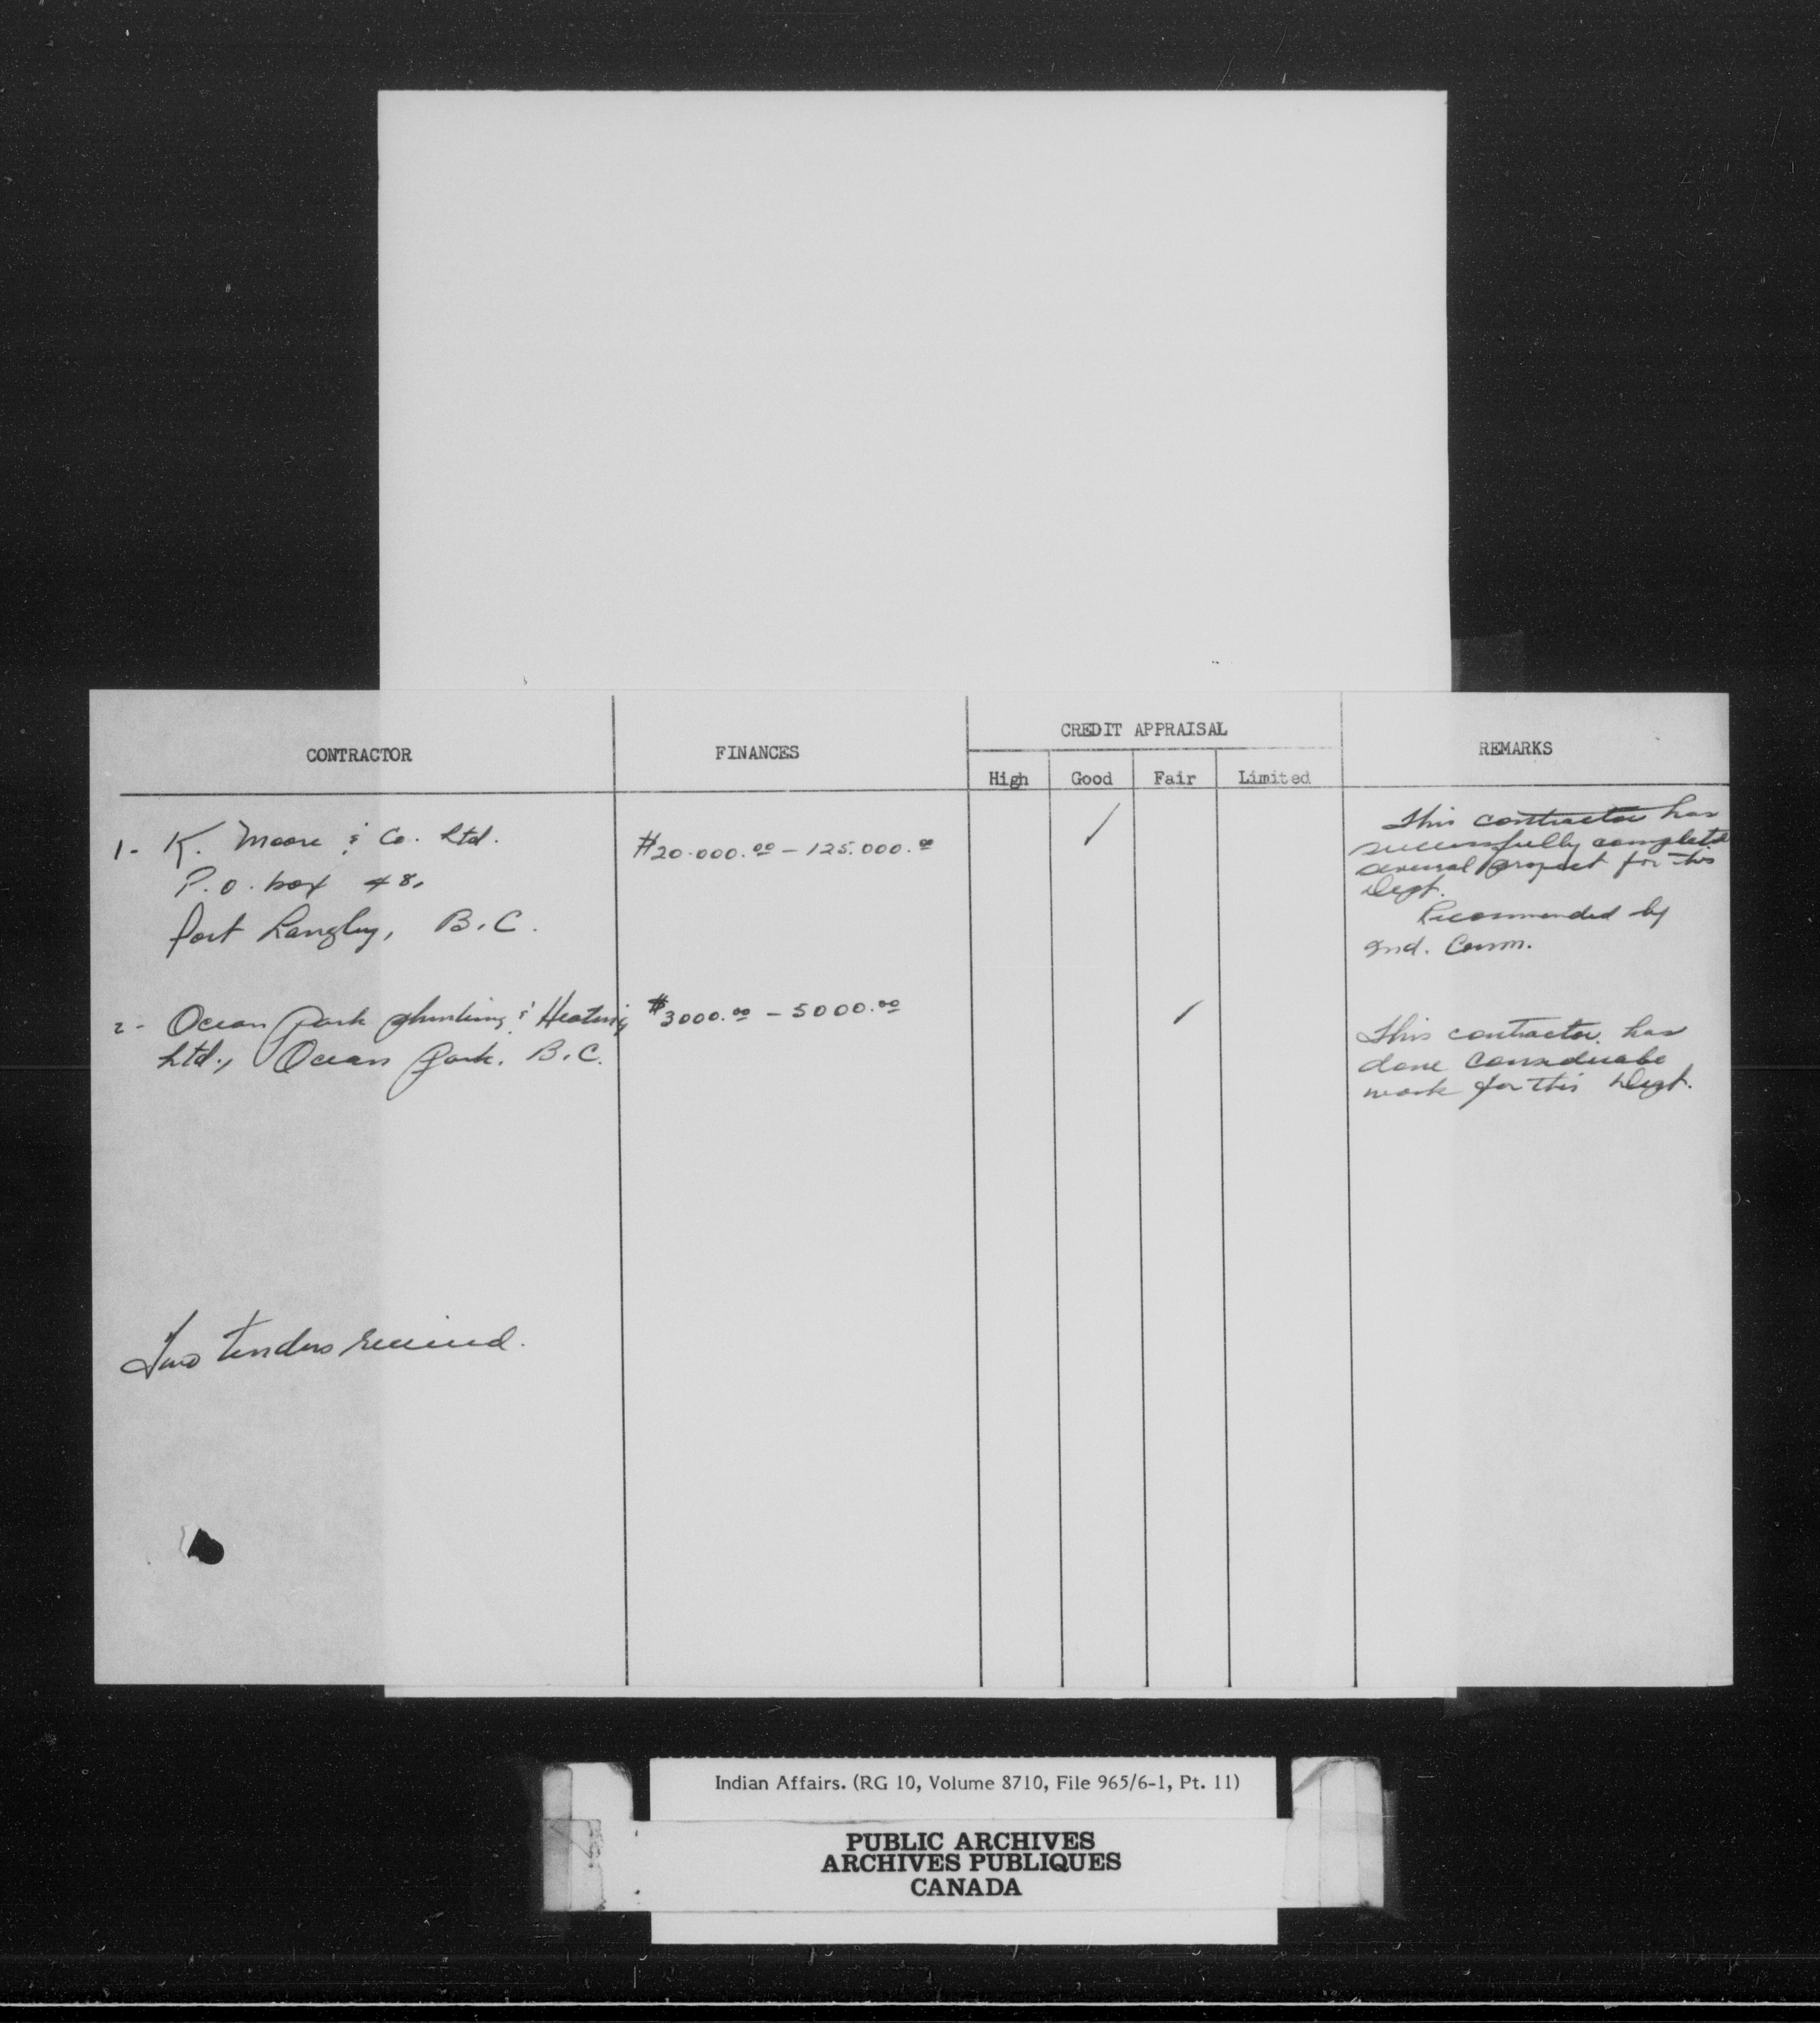 CONTRACTOR
FINANCES
CREDIT APPRAISAL
High Good Fair Limited
REMARKS
1- K. Moore & Co. Ltd.
P.O. box 48,
Fort Langley, B.C.
$20.000.00 – 125.000.00
✓
This contractor has
successfully completed
several project for this
Dept.
Recommended by
Ind. Comm.
2- Ocean Park plumbing & Heating
Ltd., Ocean Park. B.C.
$3000.00 – 5000.00
✓
This contractor has
done considerabe
work for this Dept.
Two tenders received.
Indian Affairs. (RG 10, Volume 8710, File 965/6-1, Pt. 11)
PUBLIC ARCHIVES
ARCHIVES PUBLIQUES
CANADA